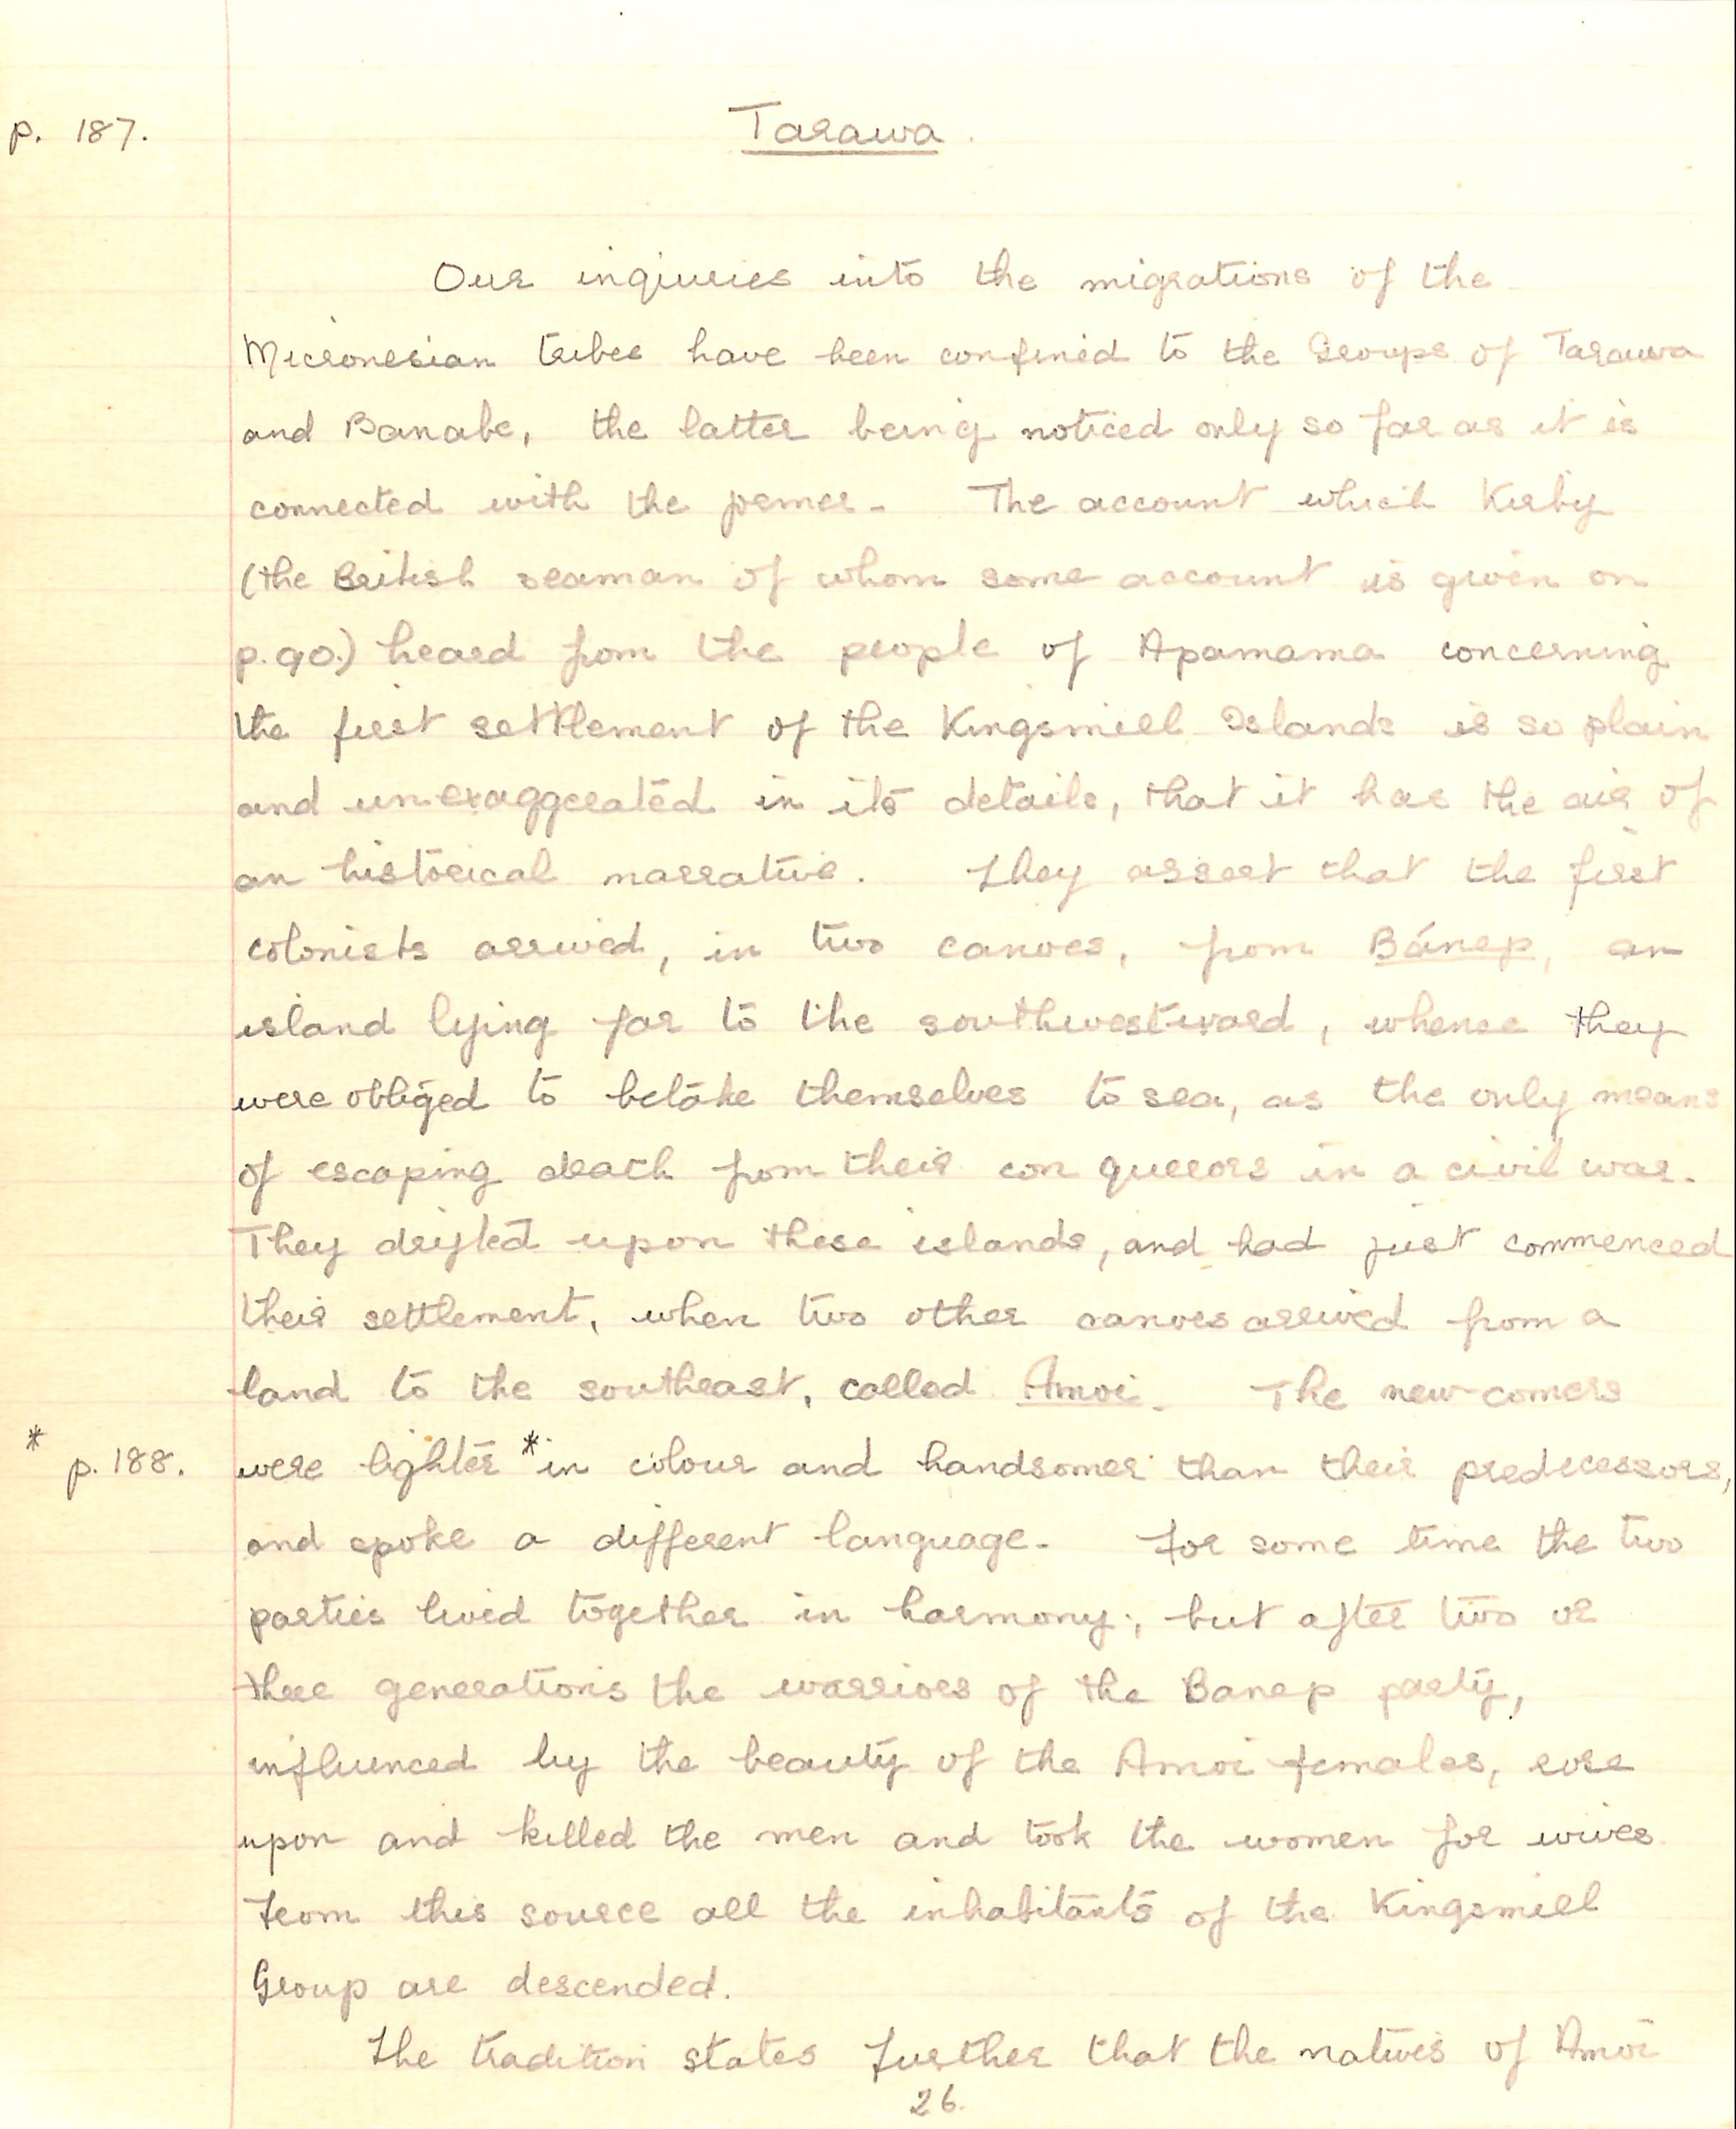 p. 187.
Tarawa.
Our inquiries into the migrations of the
Micronesian tribes have been confined to the Groups of Tarawa
and Banabe, the latter being noticed only so far as it is
connected with the former. The account which Kirby
(the British seaman of whom some account is given on
p. 90.) heard from the people of Apamama concerning
the first settlement of the Kingsmill Islands is so plain
and unexaggerated in its details, that it has the air of
an historical narrative. They assert that the first
colonists arrived, in two canoes, from Bánep, an
island lying far to the southwestward, whence they
were obliged to betake themselves to sea, as the only means
of escaping death from their conquerors in a civil war.
They drifted upon these islands, and had just commenced
their settlement, when two other canoes arrived from a
land to the southeast, called Amoi. The new-comers
* p. 188. were lighter * in colour and handsomer than their predecessors,
and spoke a different language. For some time the two
parties lived together in harmony; but after two or
three generations the warriors of the Banep party,
influenced by the beauty of the Amoi females, rose
upon and killed the men and took the women for wives
From this source all the inhabitants of the Kingsmill
Group are descended.
The tradition states further that the natives of Amoi
26.